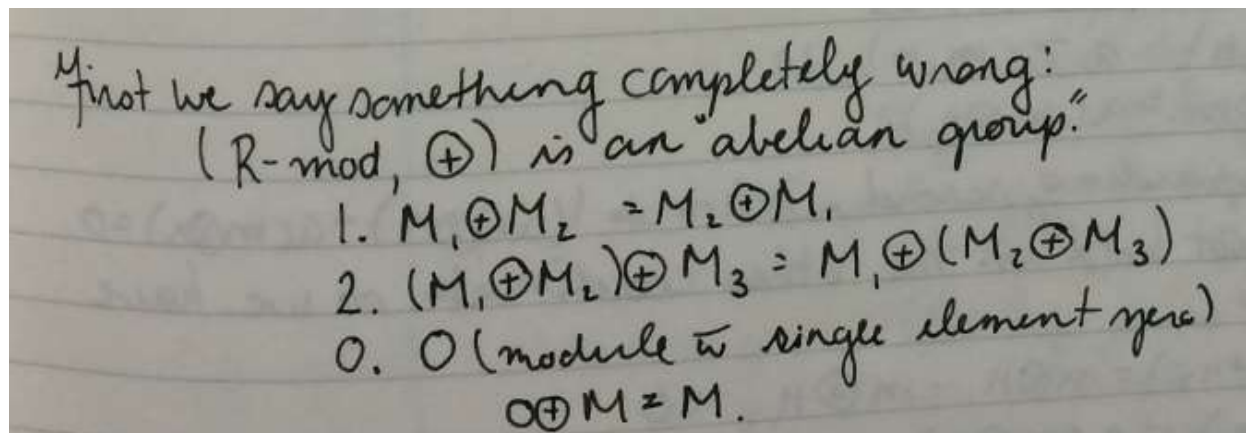 First we say something completely wrong:
(R-mod, ⊕) is an "abelian group."
1. M₁⊕M₂ = M₂⊕M₁
2. (M₁⊕M₂)⊕M₃ = M₁⊕(M₂⊕M₃)
0. 0 (module w̄ single element zero)
0⊕M = M.